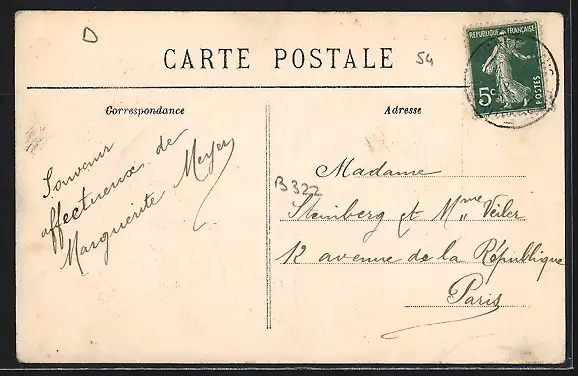 D
CARTE POSTALE
54
REPUBLIQUE FRANÇAISE
5c
POSTES
Correspondance
Adresse
Souvenir
affectueux de
Marguerite Meyer
Madame
B 322
Steinberg et Mme Veiler
12 avenue de la République
Paris